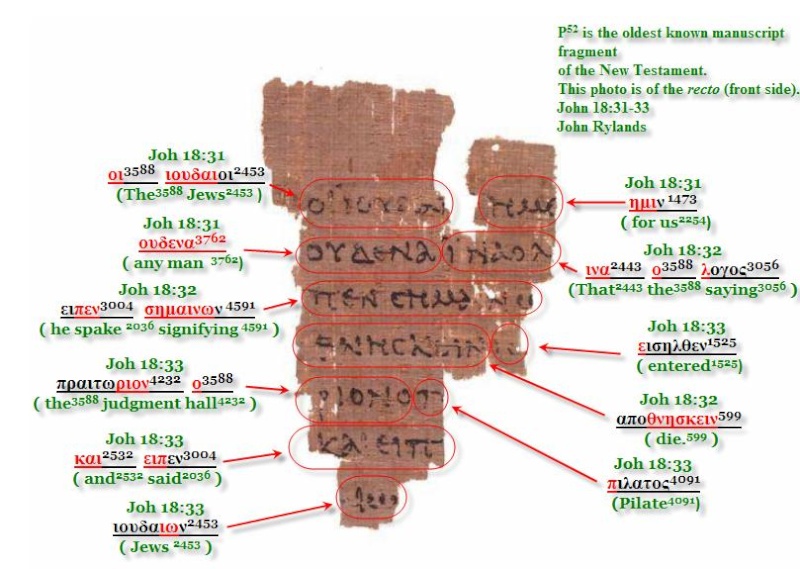 P⁵² is the oldest known manuscript
fragment
of the New Testament.
This photo is of the recto (front side).
John 18:31-33
John Rylands
Joh 18:31
οι³⁵⁸⁸ ιουδαιοι²⁴⁵³
(The³⁵⁸⁸ Jews²⁴⁵³ )
Joh 18:31
ουδενα³⁷⁶²
( any man ³⁷⁶²)
Joh 18:32
ειπεν³⁰⁰⁴ σημαινων ⁴⁵⁹¹
( he spake ²⁰³⁶ signifying ⁴⁵⁹¹ )
Joh 18:33
πραιτωριον⁴²³² ο³⁵⁸⁸
( the³⁵⁸⁸ judgment hall⁴²³² )
Joh 18:33
και²⁵³² ειπεν³⁰⁰⁴
( and²⁵³² said²⁰³⁶ )
Joh 18:33
ιουδαιων²⁴⁵³
( Jews ²⁴⁵³ )
ΟΥΔΕΝΑ ΙΝΑΟΛ
ΠΕΝ CΗΜΑΙΝΩ
ΡΙΟΝΟΠ
ΚΑΙ ΕΙΠ
Joh 18:31
ημιν ¹⁴⁷³
( for us²²⁵⁴)
Joh 18:32
ινα²⁴⁴³ ο³⁵⁸⁸ λογος³⁰⁵⁶
(That²⁴⁴³ the³⁵⁸⁸ saying³⁰⁵⁶ )
Joh 18:33
εισηλθεν¹⁵²⁵
( entered¹⁵²⁵)
Joh 18:32
αποθνησκειν⁵⁹⁹
( die.⁵⁹⁹ )
Joh 18:33
πιλατος⁴⁰⁹¹
(Pilate⁴⁰⁹¹)